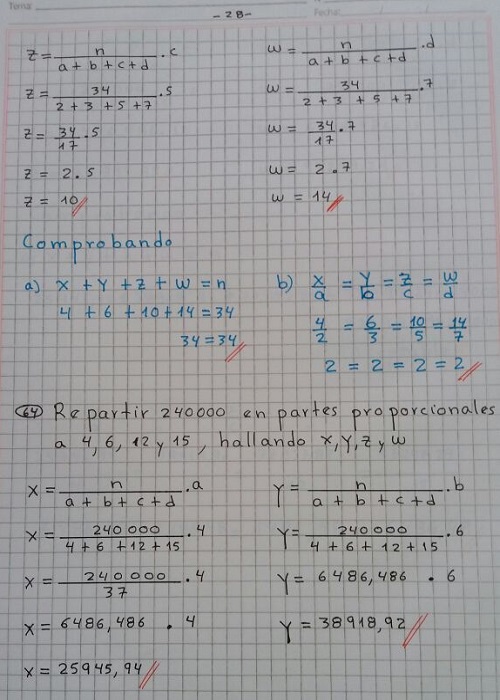 Tema:
- 28 -
Fecha:
z = n / (a + b + c + d) . c
z = 34 / (2 + 3 + 5 + 7) . 5
z = 34/17 . 5
z = 2 . 5
z = 10
w = n / (a + b + c + d) . d
w = 34 / (2 + 3 + 5 + 7) . 7
w = 34/17 . 7
w = 2 . 7
w = 14
Comprobando
a) x + y + z + w = n
4 + 6 + 10 + 14 = 34
34 = 34
b) x/a = y/b = z/c = w/d
4/2 = 6/3 = 10/5 = 14/7
2 = 2 = 2 = 2
64 Repartir 240000 en partes proporcionales
a 4, 6, 12 y 15, hallando x, y, z y w
x = n / (a + b + c + d) . a
x = 240 000 / (4 + 6 + 12 + 15) . 4
x = 240 000 / 37 . 4
x = 6486,486 . 4
x = 25945,94
y = n / (a + b + c + d) . b
y = 240000 / (4 + 6 + 12 + 15) . 6
y = 6486,486 . 6
y = 38918,92